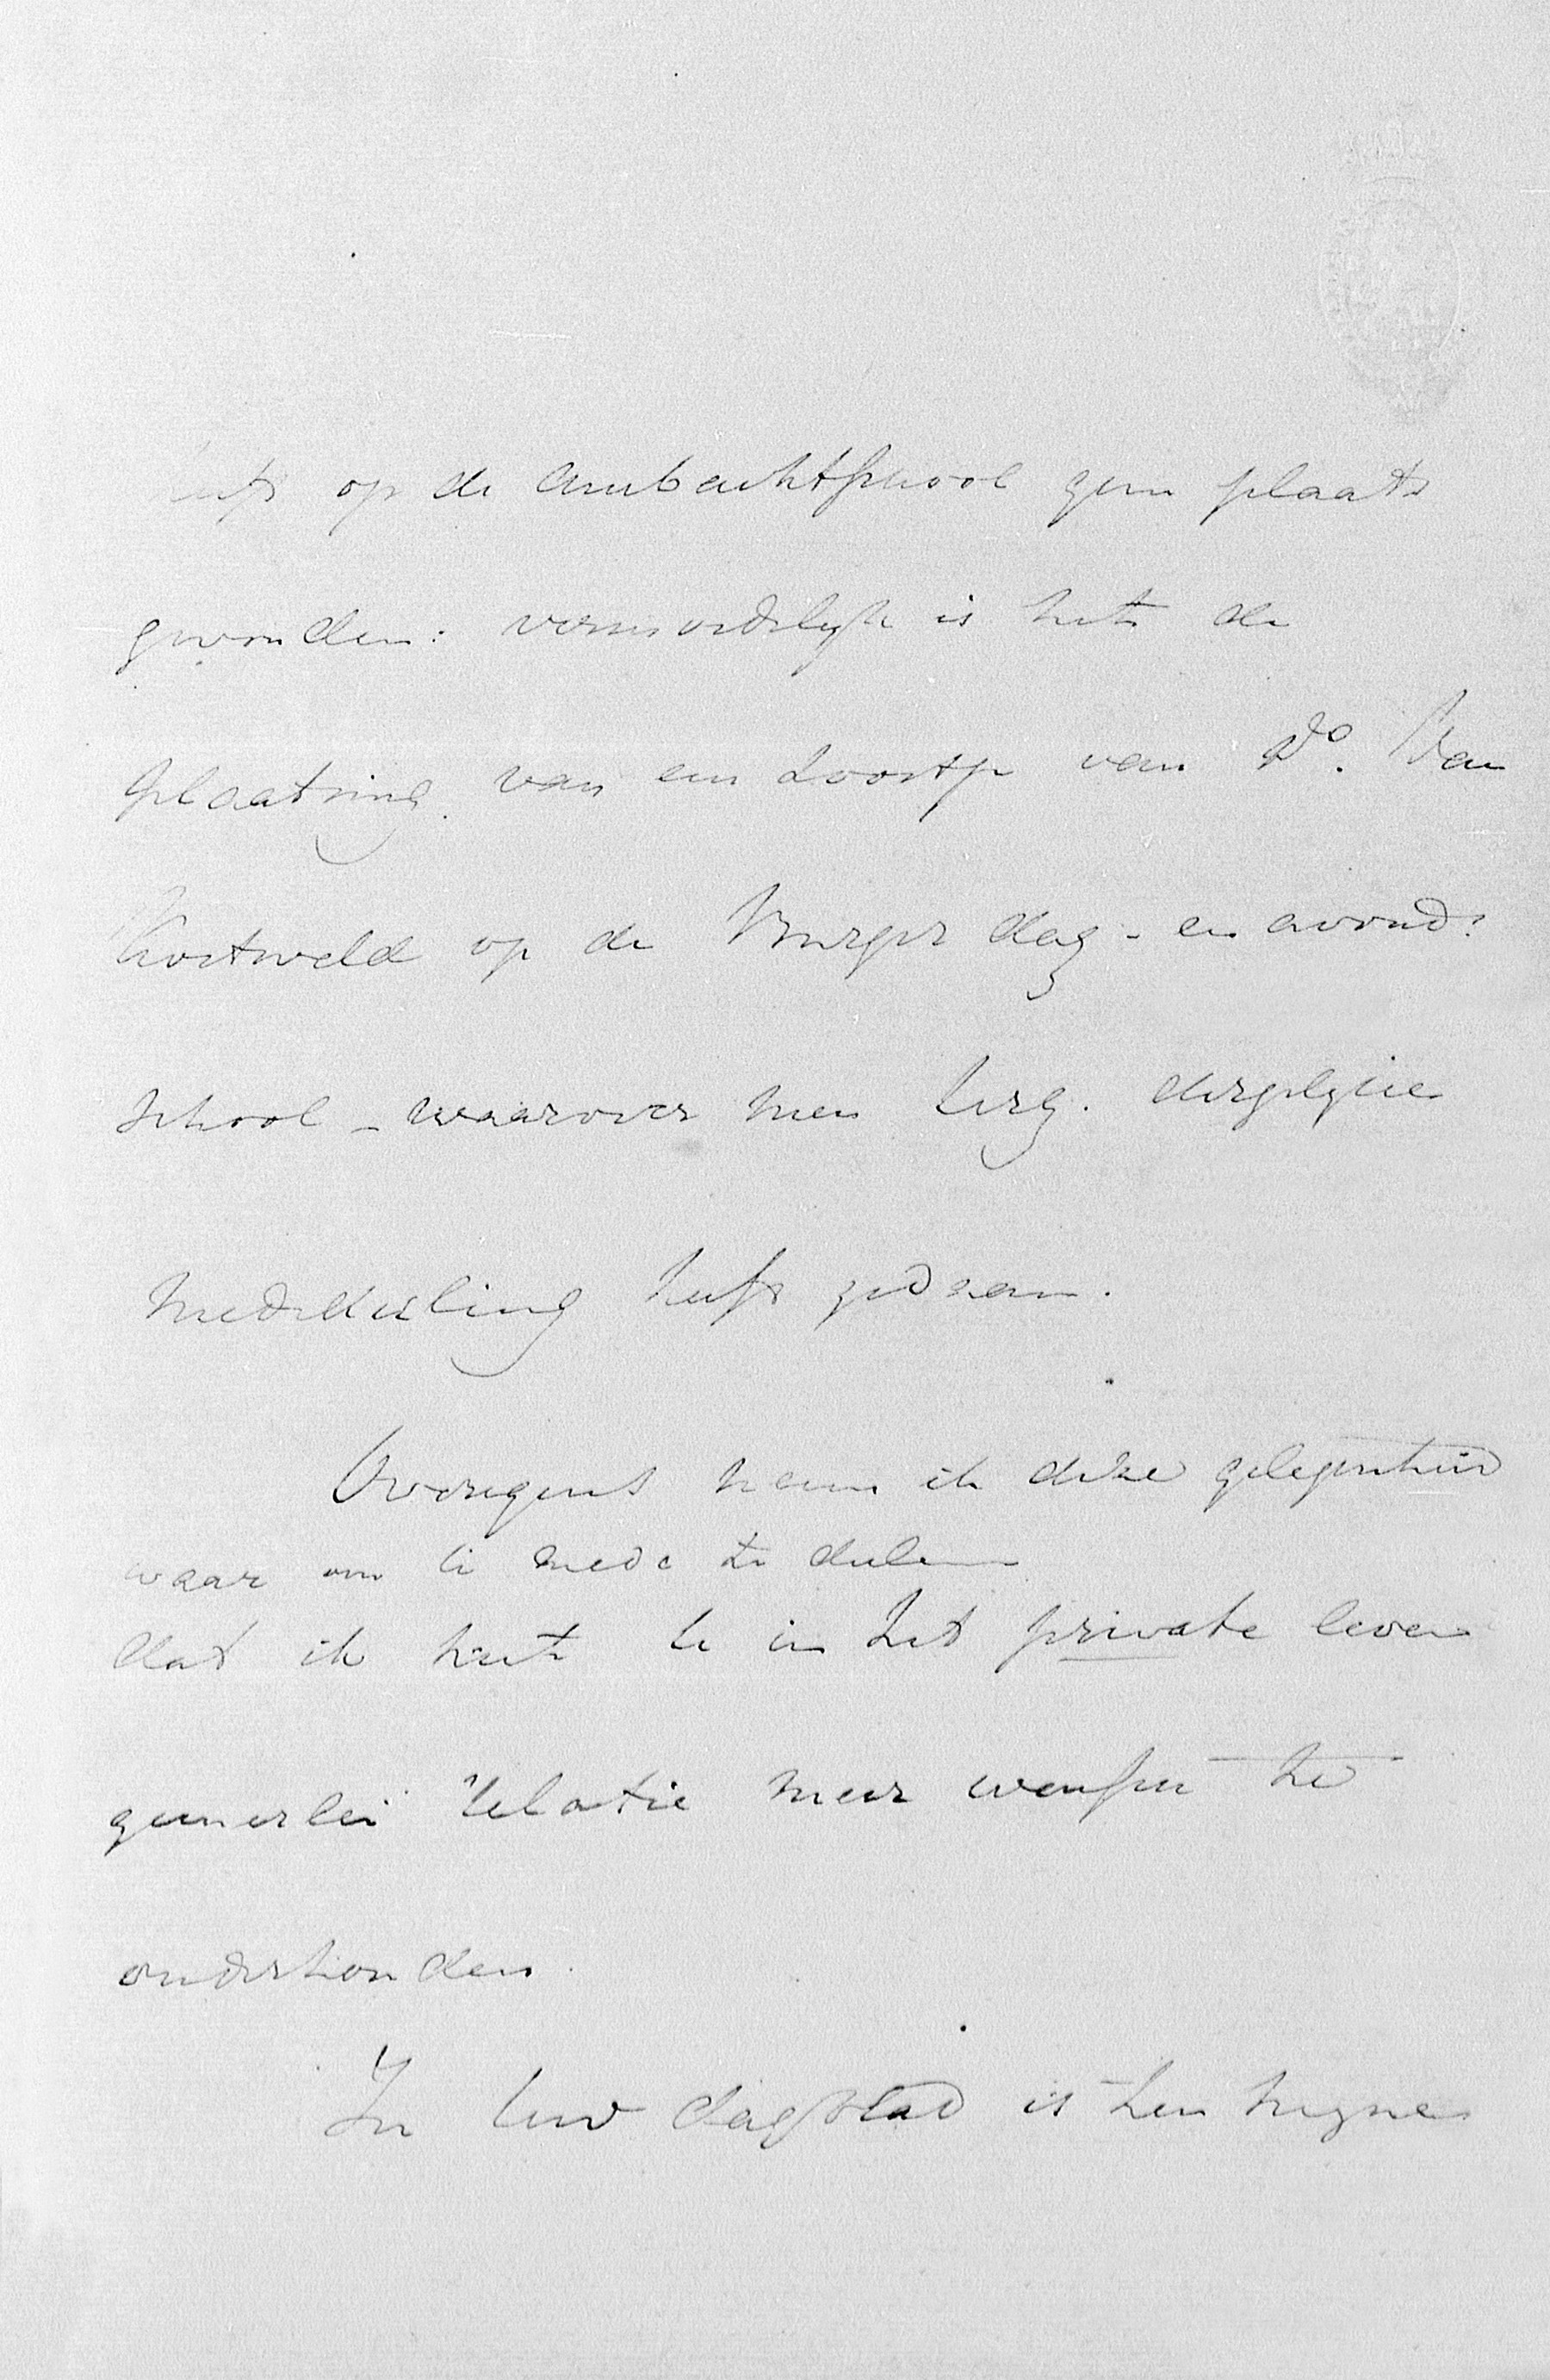 heeft op de ambachtsschool geen plaats
gevonden: vermoedelijk is het de
plaatsing van een zoontje van Do. Van
Kootweld op de Burger dag- en avond-
school - waarover men terg. dergelijke
mededeeling heeft gedaan.
Overigens neem ik deze gelegenheid
waar om U mede te deelen
dat ik met U in het private leven
geenerlei relatie meer wensch te
onderhouden.
In Uw dagblad is ten mijne